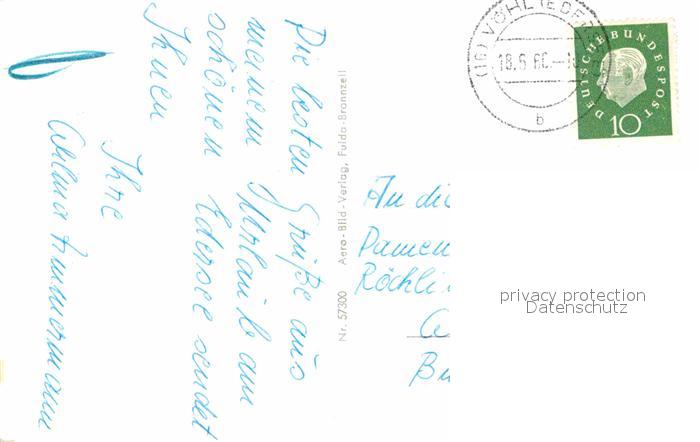 Die besten Grüße aus
meinem Urlaub am
schönen Edersee sendet
Ihnen
Ihre
Wilma Ammermann
Nr. 57300 Aero-Bild-Verlag, Fulda-Bronnzell
An die
Damen
Röchli
(16) VÖHL (EDER
18.6.60
b
DEUTSCHE BUNDESPOST
10
privacy protection
Datenschutz